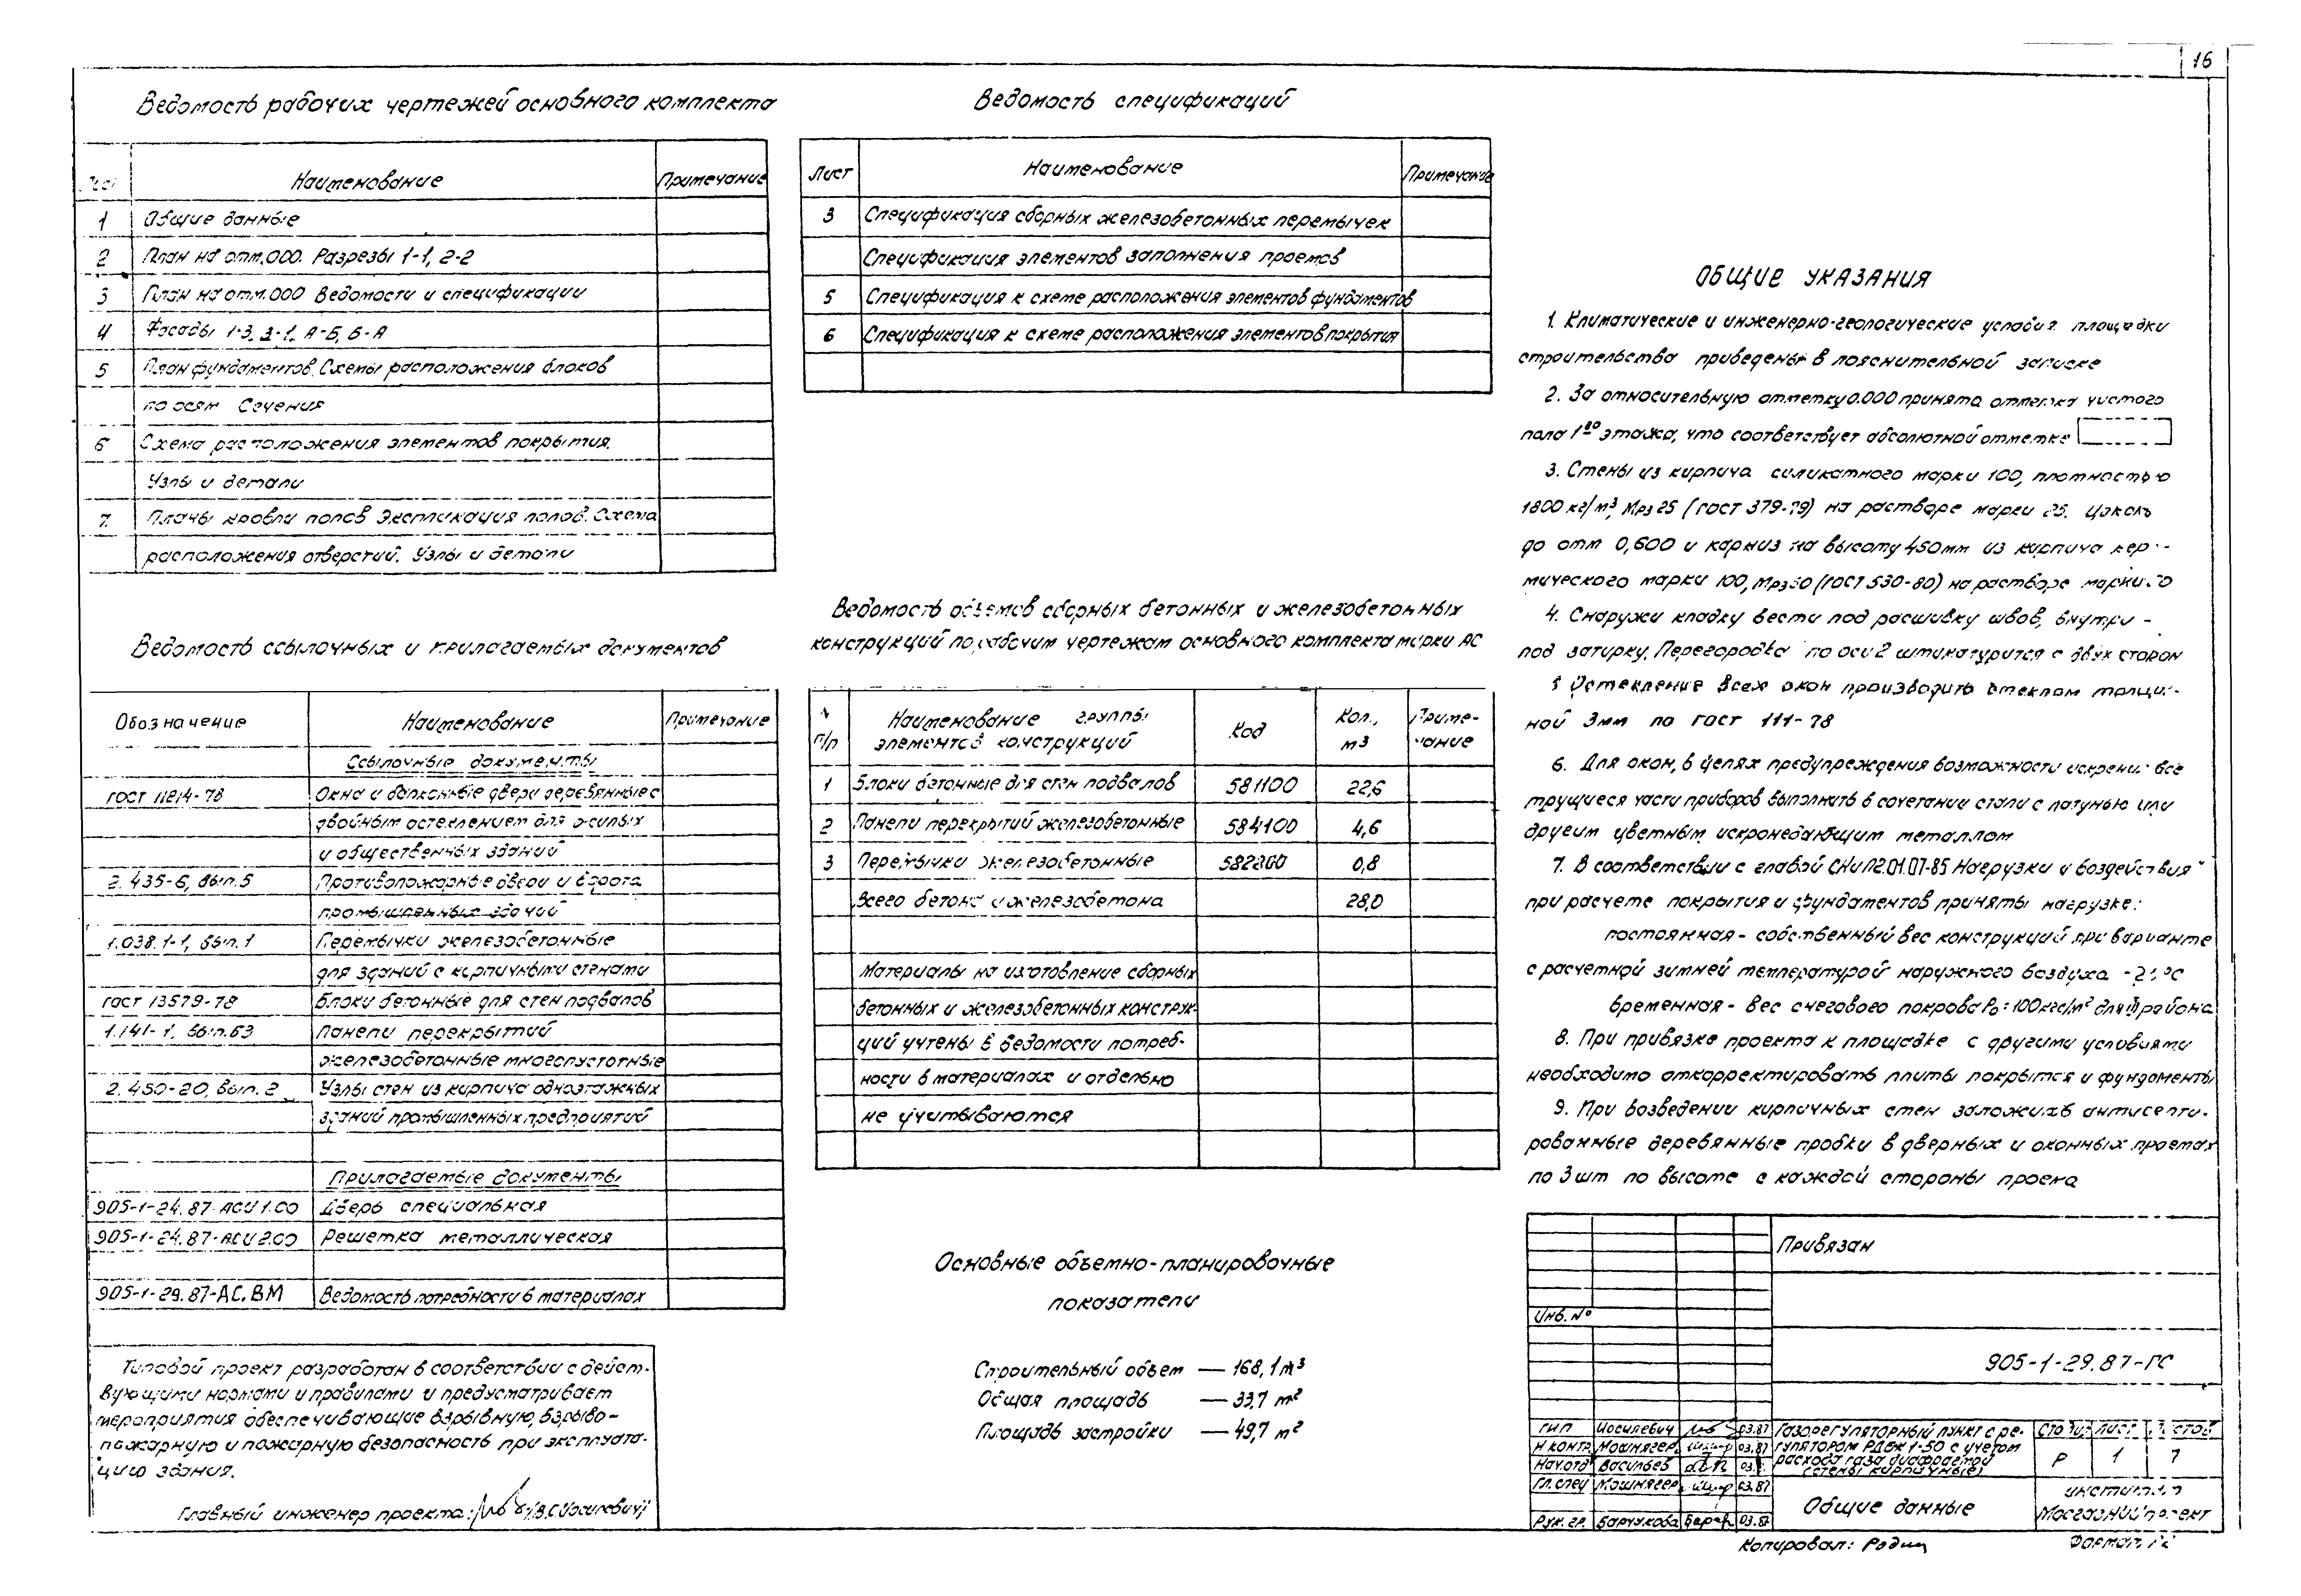 16
Ведомость рабочих чертежей основного комплекта
Лист Наименование Примечание
1 Общие данные
2 План на отм.000. Разрезы 1-1, 2-2
3 План на отм.000 Ведомости и спецификации
4 Фасады 1-3, 3-1, А-Б, Б-А
5 План фундаментов. Схемы расположения блоков
по осям Сечения
6 Схема расположения элементов покрытия.
Узлы и детали
7 Планы кровли полов Экспликация полов. Схема
расположения отверстий. Узлы и детали
Ведомость ссылочных и прилагаемых документов
Обозначение Наименование Примечание
Ссылочные документы
ГОСТ 11214-78 Окна и балконные двери деревянные с
двойным остеклением для жилых
и общественных зданий
2.435-6, вып.5 Противопожарные двери и ворота
промышленных зданий
1.038.1-1, вып.1 Перемычки железобетонные
для зданий с кирпичными стенами
ГОСТ 13579-78 Блоки бетонные для стен подвалов
1.141-1, вып.63 Панели перекрытий
железобетонные многопустотные
2.430-20, вып.2 Узлы стен из кирпича одноэтажных
зданий промышленных предприятий
Прилагаемые документы
905-1-24.87-АСИ1.00 Дверь специальная
905-1-24.87-АСИ2.00 Решетка металлическая
905-1-29.87-АС.ВМ Ведомость потребности в материалах
Типовой проект разработан в соответствии с дейст-
вующими нормами и правилами и предусматривает
мероприятия обеспечивающие взрывную, взрыво-
пожарную и пожарную безопасность при эксплуата-
цию здания.
Главный инженер проекта: /В.С.Иосилевич/
Ведомость спецификаций
Лист Наименование Примечание
3 Спецификация сборных железобетонных перемычек
Спецификация элементов заполнения проемов
5 Спецификация к схеме расположения элементов фундаментов
6 Спецификация к схеме расположения элементов покрытия
Ведомость объемов сборных бетонных и железобетонных
конструкций по рабочим чертежам основного комплекта марки АС
N п/п Наименование группы элементов конструкций Код Кол., м³ Приме-чание
1 Блоки бетонные для стен подвалов 581100 22,6
2 Панели перекрытий железобетонные 584100 4,6
3 Перемычки железобетонные 582800 0,8
Всего бетона и железобетона 28,0
Материалы на изготовление сборных
бетонных и железобетонных конструк-
ций учтены в ведомости потреб-
ности в материалах и отдельно
не учитываются
Основные объемно-планировочные
показатели
Строительный объем — 168,1 м³
Общая площадь — 33,7 м²
Площадь застройки — 49,7 м²
ОБЩИЕ УКАЗАНИЯ
1. Климатические и инженерно-геологические условия площадки
строительства приведены в пояснительной записке
2. За относительную отметку 0.000 принята отметка чистого
пола 1го этажа, что соответствует абсолютной отметке
3. Стены из кирпича силикатного марки 100, плотностью
1800 кг/м³, Мрз 25 (ГОСТ 379-79) на растворе марки 25. Цоколь
до отм 0,600 и карниз на высоту 450мм из кирпича кера-
мического марки 100, Мрз50 (ГОСТ 530-80) на растворе марки
4. Снаружи кладку вести под расшивку швов, внутри -
под затирку. Перегородка по оси 2 штукатурится с двух сторон
5 Остекление всех окон производить стеклом толщи-
ной 3мм по ГОСТ 111-78
6. Для окон, в целях предупреждения возможности искрения все
трущиеся части приборов выполнить в сочетании стали с латунью или
другим цветным искронедающим металлом
7. В соответствии с главой СНиП2.01.07-85 Нагрузки и воздействия"
при расчете покрытия и фундаментов приняты нагрузке:
постоянная - собственный вес конструкций при варианте
с расчетной зимней температурой наружного воздуха
временная - вес снегового покрова P₀=100кгс/м² для III района
8. При привязке проекта к площадке с другими условиями
необходимо откорректировать плиты покрытия и фундаменты
9. При возведении кирпичных стен заложить антисепти-
рованные деревянные пробки в дверных и оконных проемах
по 3 шт по высоте с каждой стороны проема
Привязан
Инв. N°
905-1-29.87-ГС
ГИП Иосилевич 03.87
Н контр. Мошнягер 03.87
Нач.отд Васильев 03.
Гл.спец Мошнягер 03.87
Рук.гр. Барчукова 03.87
Газорегуляторный пункт с ре-
гулятором РДБК 1-50 с учетом
расхода газа диафрагмой
(стены кирпичные)
Стадия Лист Листов
Р 1 7
Общие данные
институт
МосгазНИИпроект
Копировал: Родиц
Формат